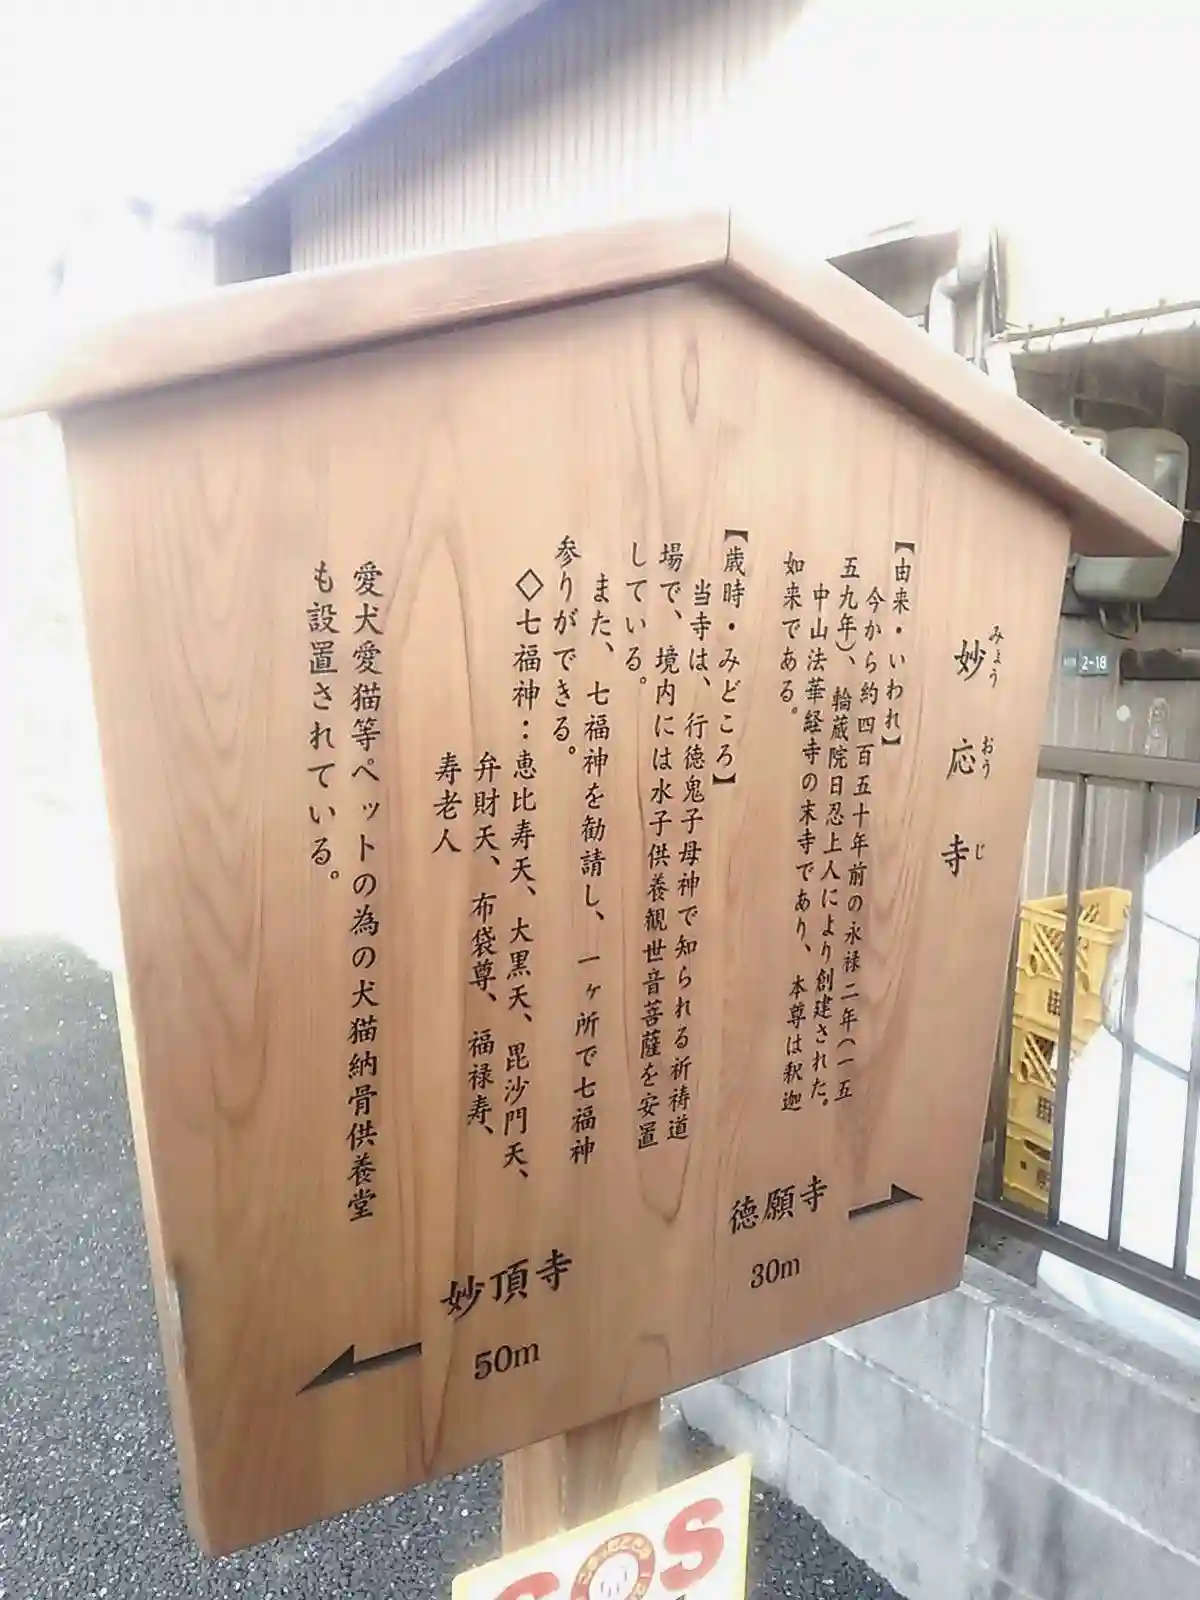 妙応寺
みょうおうじ
【由来・いわれ】
今から約四百五十年前の永禄二年(一五
五九年)、輪蔵院日忍上人により創建された。
中山法華経寺の末寺であり、本尊は釈迦
如来である。
【歳時・みどころ】
当寺は、行徳鬼子母神で知られる祈祷道
場で、境内には水子供養観世音菩薩を安置
している。
また、七福神を勧請し、一ヶ所で七福神
参りができる。
◇七福神：恵比寿天、大黒天、毘沙門天、
弁財天、布袋尊、福禄寿、
寿老人
愛犬愛猫等ペットの為の犬猫納骨供養堂
も設置されている。
徳願寺
30m
妙頂寺
50m
2-18
SOS